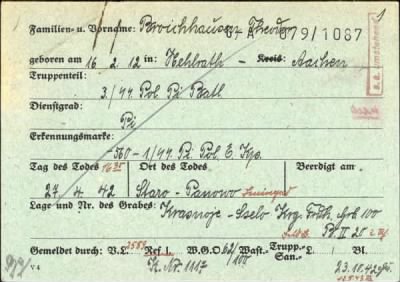 Familien- u. Vorname: Broichhausen Theodor 079/1087
geboren am 16. 2. 12 in: Kehlrath - Kreis: Aachen
s. a. umstehend
Truppenteil:
3./44 Pol. Pi. Batl.
Dienstgrad:
Pi
Erkennungsmarke:
-560- 1/44 Pi. Pol. E. Kp.
Tag des Todes 16 35 Ort des Todes Beerdigt am
27. 4. 42 Staro-Panowo
Lage und Nr. des Grabes:
Krasnoje-Sselo Krg. Frdh. Grb 100
Bl. II 20
Gemeldet durch: V.L. 2589 Ref. 1. W.G.O. 62/100 Wast.- Trupp.- San.- L. Bl.
K. Nr. 1117
V 4
23.10.42